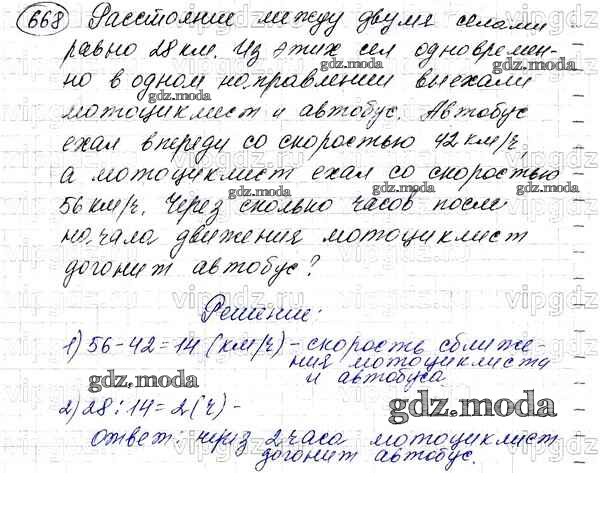 668 Расстояние между двумя селами
равно 28 км. Из этих сел одновремен-
но в одном направлении выехали
мотоциклист и автобус. Автобус
ехал впереди со скоростью 42 км/ч,
а мотоциклист ехал со скоростью
56 км/ч. Через сколько часов после
начала движения мотоциклист
догонит автобус?
Решение:
1) 56-42=14 (км/ч) - скорость сближе-
ния мотоциклиста
и автобуса
gdz.moda
2) 28:14=2(ч) -
gdz.moda
ответ: через 2 часа мотоциклист
догонит автобус.